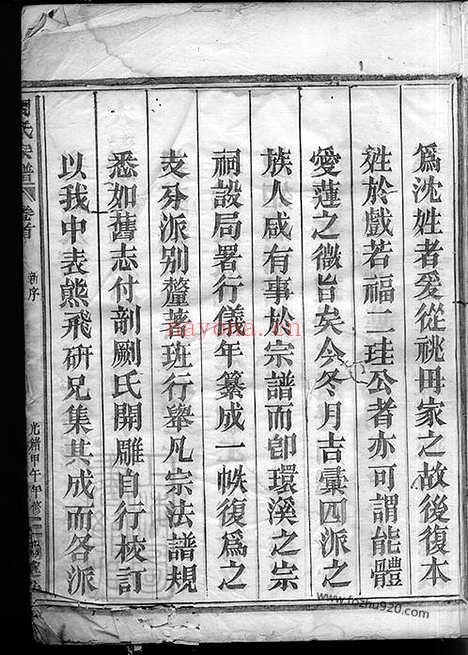 爲沈姓者爰從祧毋家之故後復本
姓於戲若福二珪公者亦可謂能體
愛蓮之微旨矣今冬月吉彙四派之
族人咸有事於宗譜而卽環溪之宗
祠設局署行儀年纂成一帙復爲之
支分派别釐著班行舉凡宗法譜規
悉如舊志付剞劂氏開雕自行校訂
以我中表熊飛研兄集其成而各派
氏宗譜 卷首 新序 光緒甲午
nayona.cn
www.foshu920.com